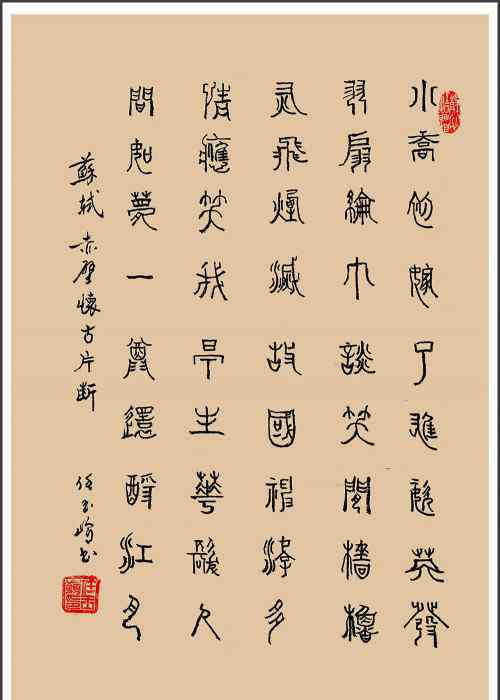 小喬初嫁了雄姿英發
羽扇綸巾談笑間檣櫓
灰飛煙滅故國神遊多
情應笑我早生華髮人
間如夢一尊還酹江月
蘇軾赤壁懷古片斷
任玉書